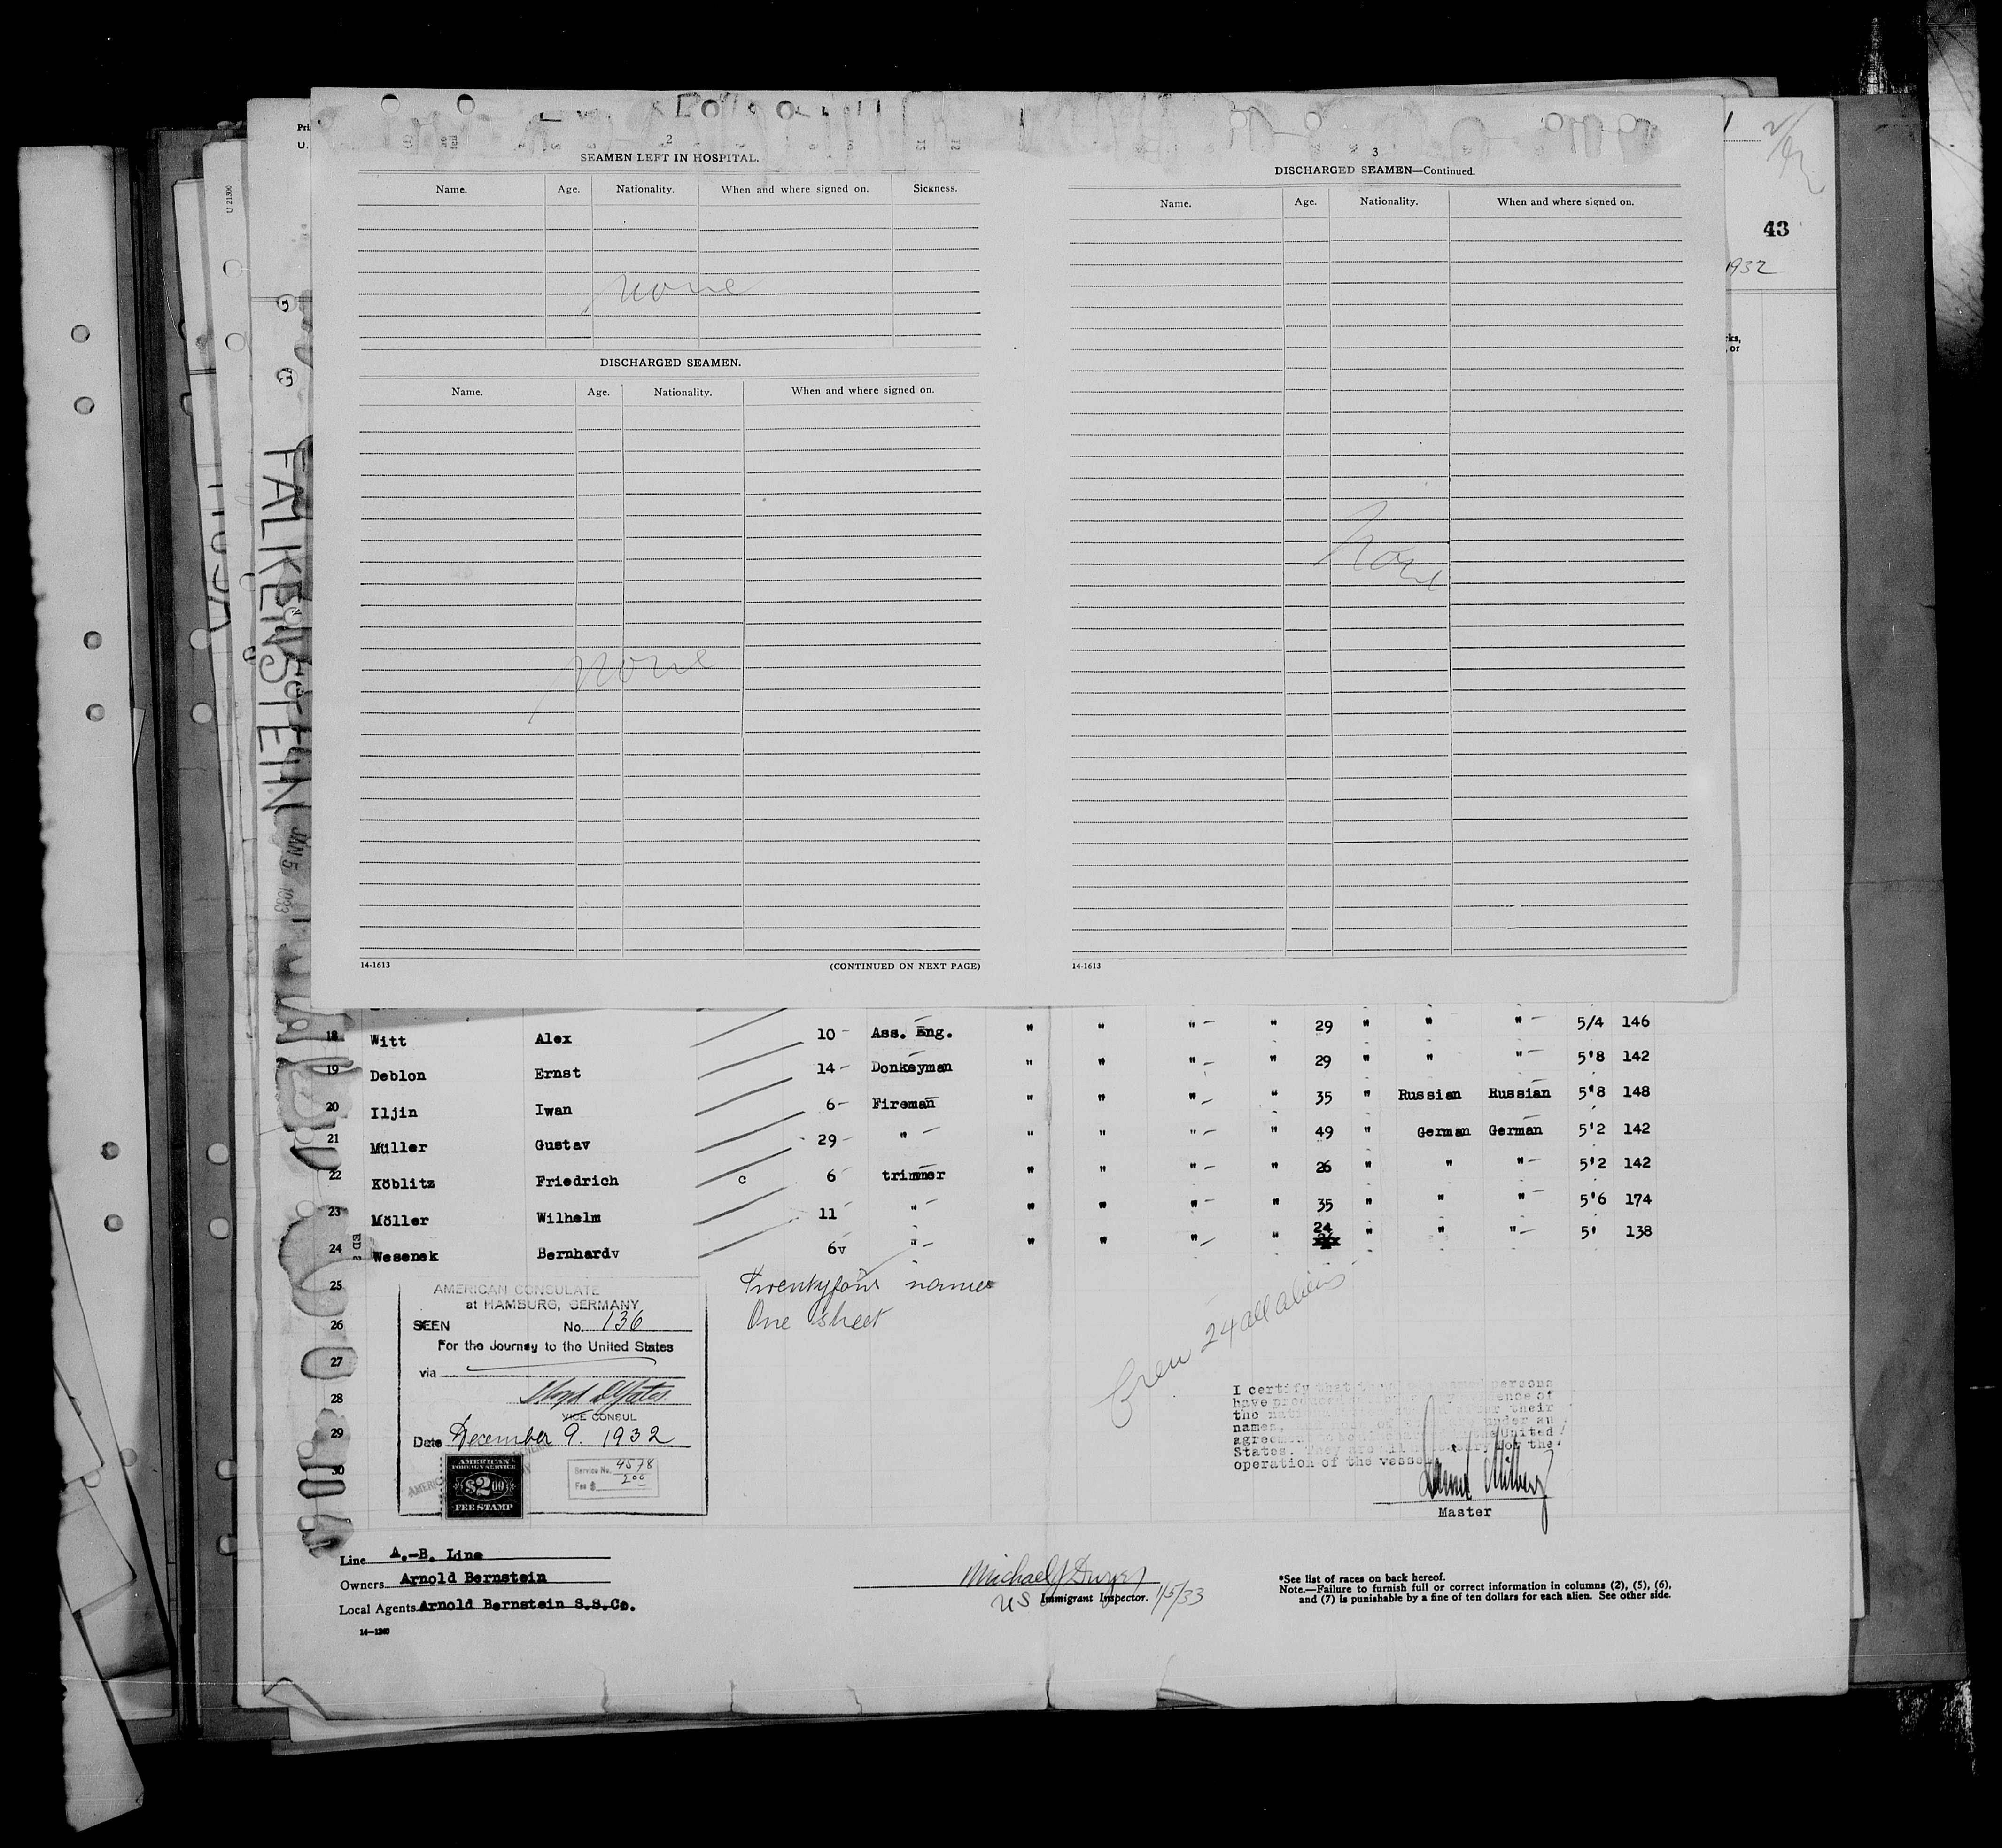 2
SEAMEN LEFT IN HOSPITAL.
Name. Age. Nationality. When and where signed on. Sickness.
none
DISCHARGED SEAMEN.
Name. Age. Nationality. When and where signed on.
none
14-1613 (CONTINUED ON NEXT PAGE)
3
DISCHARGED SEAMEN—Continued.
Name. Age. Nationality. When and where signed on.
None
14-1613
43
1932
rks,
, or
U 21300
FALKENSTEIN
JAN 5 1933
18 Witt Alex 10 - Ass. Eng. " " " - " 29 " " " - 5/4 146
19 Deblon Ernst 14 - Donkeyman " " " - " 29 " " " - 5'8 142
20 Iljin Iwan 6 - Fireman " " " - " 35 " Russian Russian 5'8 148
21 Müller Gustav 29 - " - " " " - " 49 " German German 5'2 142
22 Köblitz Friedrich c 6 trimmer " " " - " 26 " " " - 5'2 142
23 Möller Wilhelm 11 " - " " " - " 35 " " " - 5'6 174
24 Wesenek Bernhardv 6v " - " " " - " 24 " " " - 5' 138
25
26
27
28
29
30
Twentyfour names
One sheet
Crew 24 all aliens
AMERICAN CONSULATE
at HAMBURG, GERMANY
SEEN No. 136
For the Journey to the United States
via
VICE CONSUL
Date December 9. 1932
AMERICAN
FOREIGN SERVICE
$2.00
FEE STAMP
Service No. 4578
Fee $ 2.00
I certify that
have
the
names,
States.
operation of the vessel
Master
Line A.-B. Line
Owners Arnold Bernstein
Local Agents Arnold Bernstein S.S.Co.
14—1240
Michael J Dwyer
US Immigrant Inspector. 1/5/33
*See list of races on back hereof.
Note.—Failure to furnish full or correct information in columns (2), (5), (6),
and (7) is punishable by a fine of ten dollars for each alien. See other side.